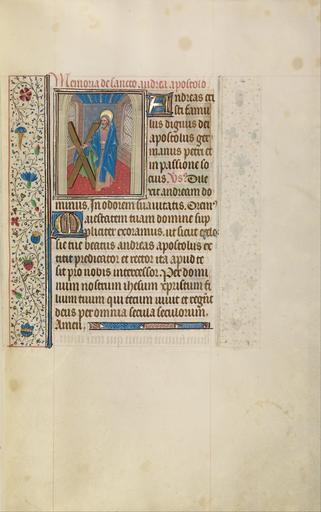 Memoria de sancto andrea apostolo
Andreas cri
sti famu
lus dignus dei
apostolus ger
manus petri et
in passione so
cius. Vs. Dile
xit andream do
minus. In odorem suauitatis. Orem9
Maiestatem tuam domine sup
pliciter exoramus. ut sicut eccle
sie tue beatus andreas apostolus ex
titit predicator et rector ita apud te
sit pro nobis intercessor. Per domi
num nostrum ihesum xpristum fi
lium tuum qui tecum uiuit et regnat
deus per omnia secula seculorum.
Amen.